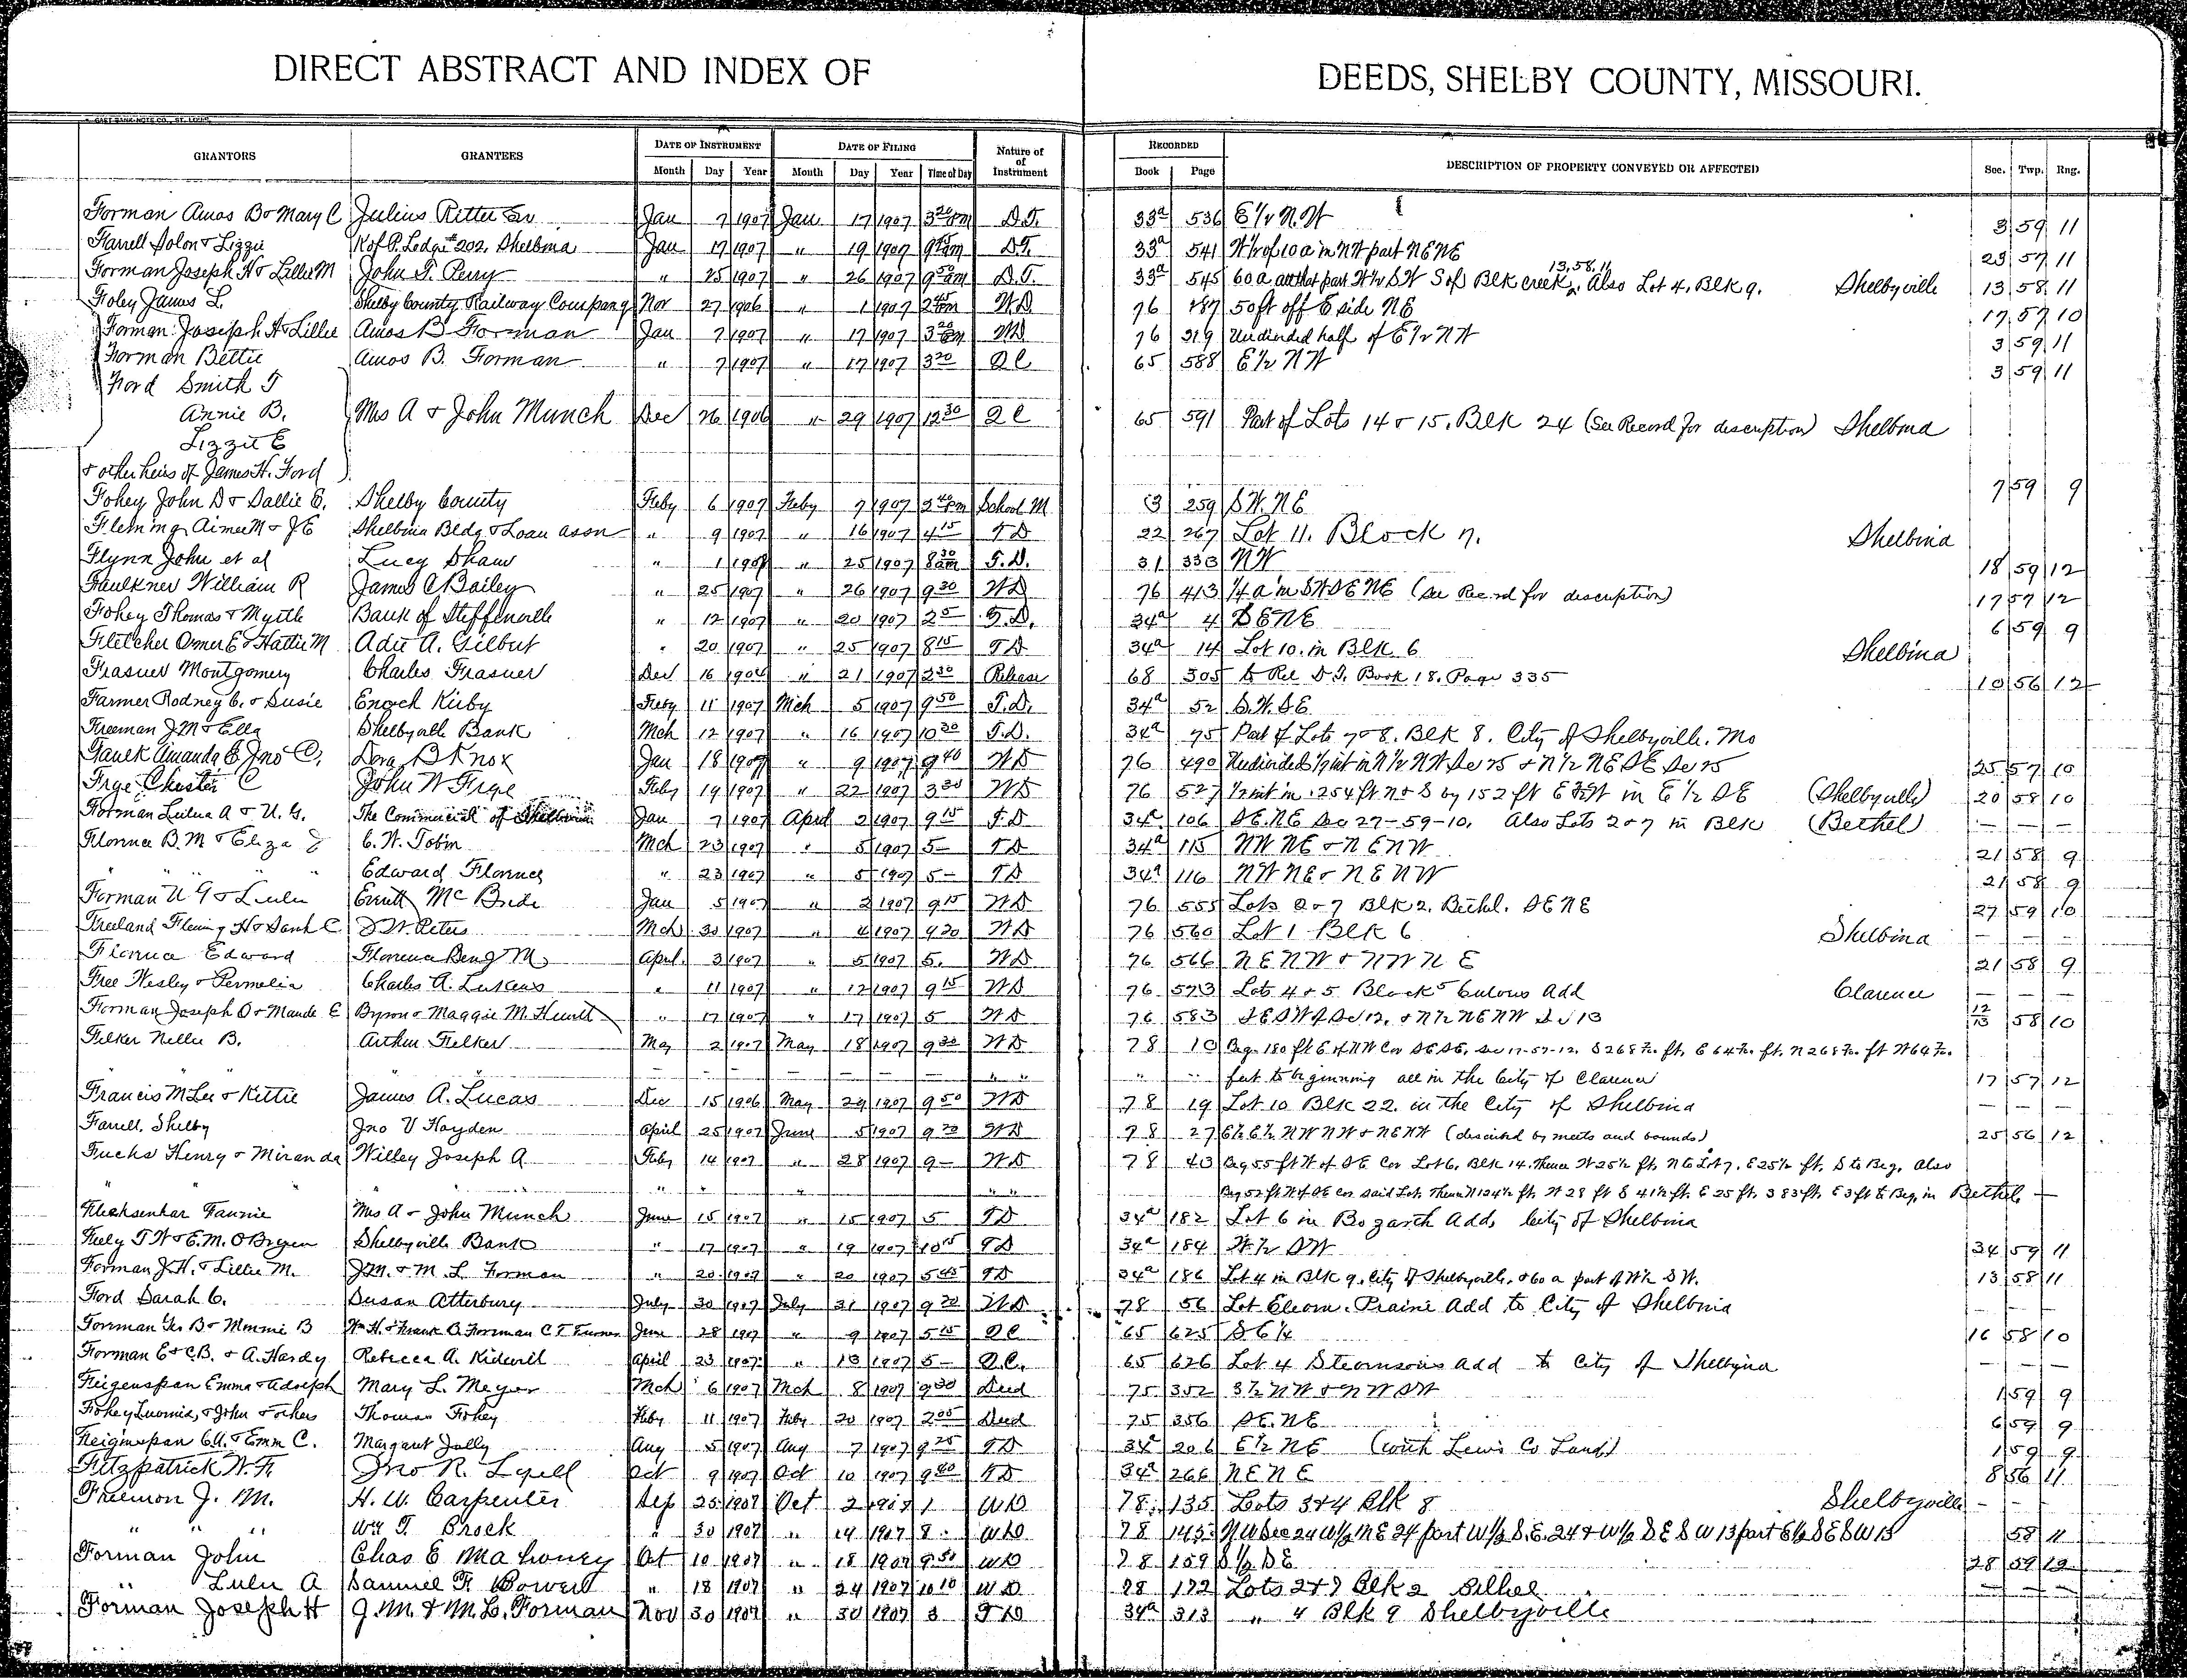 DIRECT ABSTRACT AND INDEX OF DEEDS, SHELBY COUNTY, MISSOURI.
GRANTORS GRANTEES DATE OF INSTRUMENT DATE OF FILING Nature of Instrument RECORDED DESCRIPTION OF PROPERTY CONVEYED OR AFFECTED Sec. Twp. Rng.
Month Day Year Month Day Year Time of Day Book Page
Forman Amos B & Mary C Julius Ritter Jan 7 1907 Jan 17 1907 3 20 pm D.T. 33a 536 E ½ N.W 3 59 11
Farrell Solon & Lizzie K of P. Lodge #202, Shelbina Jan 17 1907 " 19 1907 D.T. 33a 541 W ½ of 10 a in NW part NENE 23 57 11
Forman Joseph H & Lillie M John T. Perry " 25 1907 " 26 1907 D.T. 33a 545 60 a part W ½ SW S of Blk creek 13,58,11 Also Lot 4, Blk 9. Shelbyville 13 58 11
Foley James L. Shelby County Railway Company Nov 27 1906 " 1 1907 W.D. 76 187 50 ft off E side NE 17 57 10
Forman Joseph H & Lillie Amos B Forman Jan 7 1907 " 17 1907 3 20 pm WD 76 319 Undivided half of E ½ NW 3 59 11
Forman Bettie Amos B. Forman " 7 1907 " 17 1907 3 20 Q C 65 588 E ½ NW 3 59 11
Ford Smith T
Annie B. Mrs A & John Munch Dec 26 1906 " 29 1907 12 30 Q C 65 591 Part of Lots 14 & 15, Blk 24 (See Record for description) Shelbina
Lizzie E
& other heirs of James H. Ford
Fohey John D & Sallie E. Shelby County Feby 6 1907 Feby 7 1907 School M 13 259 SW. NE 7 59 9
Fleming Aimee M & J E Shelbina Bldg & Loan assn " 9 1907 " 16 1907 4 15 T D 22 267 Lot 11. Block 7. Shelbina
Flynn John et al Lucy Shaw " 1 1907 " 25 1907 8 30 am T.D. 31 333 NW 18 59 12
Faulkner William R James C Bailey " 25 1907 " 26 1907 9 30 WD 76 413 ¼ a in SWSENE (See Record for description) 17 57 12
Fohey Thomas & Myrtle Bank of Steffenville " 12 1907 " 20 1907 T.D. 34a 4 SENE 6 59 9
Fletcher Omer E & Hattie M Adie A. Gilbert " 20 1907 " 25 1907 8 15 T D 34a 14 Lot 10. in Blk. 6 Shelbina
Frasuer Montgomery Charles Frasuer Dec 16 1904 " 21 1907 2 30 Release 68 305 to Rel D.T. Book 18. Page 335 10 56 12
Farmer Rodney C. & Susie Enoch Kirby Feby 11 1907 Mch 5 1907 9 50 T.D. 34a 52 S.W. SE
Freeman J.M & Ella Shelbyville Bank Mch 12 1907 " 16 1907 10 30 T.D. 34a 75 Part of Lots 7 & 8. Blk 8. City of Shelbyville. Mo
Amanda E Jno C. Dora B Knox Jan 18 1907 " 9 1907 9 40 WD 76 490 Undivided int in N ½ NW Sec 25 & N ½ NE SE Sec 25 25 57 10
Frye Chester C John W Frye Feby 19 1907 " 22 1907 3 30 WD 76 527 ½ int in 254 ft N & S by 152 ft E & W in E ½ SE (Shelbyville) 20 58 10
Forman Lulua A & U. G. The Commercial of Shelbina Jan 7 1907 April 2 1907 9 15 T.D 34a 106 SE.NE Sec 27-59-10. Also Lots 2 & 7 in Blk (Bethel) — — —
Florence B.M & Eliza J C. W. Tobin Mch 23 1907 " 5 1907 5— T D 34a 115 NW NE & NENW 21 58 9
" " " Edward Florence " 23 1907 " 5 1907 5— T D 34a 116 NW NE & NENW 21 58 9
Forman U G & Lulu Emitt McBride Jan 5 1907 " 2 1907 9 15 WD 76 555 Lots 2 & 7 Blk 2. Bethel. SENE 27 59 10
Freeland Fleming H & Sarah C J. W. Peters Mch 30 1907 " 4 1907 4 20 WD 76 560 Lot 1 Blk 6 Shelbina — — —
Florence Edward Florence Benj M. April 3 1907 " 5 1907 5. WD 76 566 NENW & NWNE 21 58 9
Free Wesley & Permelia Charles A. " 11 1907 " 12 1907 9 15 WD 76 573 Lots 4 & 5 Block 5 Add Clarence — — —
Forman Joseph O & Maude E Byron & Maggie M. Hewitt " 17 1907 " 17 1907 5 WD 76 583 SESW of Sec 12. & N ½ NENW Sec 13 12 13 58 10
Felker Nellie B. Arthur Felker May 2 1907 May 18 1907 9 WD 78 10 Beg. 180 ft E of NW Cor SESE, Sec 17-57-12.
" feet to beginning all in the City of Clarence 17 57 12
Francis M Lee & Kittie James A. Lucas Dec 15 1906 May 29 1907 9 50 WD 78 19 Lot 10 Blk 22. in the City of Shelbina — — —
Farrell, Shelby Jno V Hayden April 25 1907 June 5 1907 WD 78 27 E ½ E ½ NWNW & NENW (described by meets and bounds) 25 56 12
Fuchs Henry & Miranda Willey Joseph A Feby 14 1907 " 28 1907 9— WD 78 43 Beg 55 ft W of SE Cor Lot 6, Blk 14. Thence W 25½ ft. N to Lot 7. E 25½ ft. S to Beg. Also
Beg 52 ft W of SE cor said Lot. Thence N 124½ ft. W 28 ft S 41½ ft. E 25 ft. S 83 ft. E 3 ft to Beg. in Bethel —
Fannie Mrs A & John Munch June 15 1907 " 15 1907 5 T D 34a 182 Lot 6 in Bozarth Add. City of Shelbina
Feely T W & E. M. O'Bryen Shelbyville Bank " 17 1907 " 19 1907 10 15 T D 34a 184 W. ½ SW 34 59 11
Forman J.H. & Lillie M. J.M. & M. L. Forman " 20 1907 " 20 1907 5 45 T D 34a 186 Lot 4 in Blk 9. City of Shelbyville, & 60 a part of W ½ SW. 13 58 11
Ford Sarah C. Susan Atterbury July 30 1907 July 31 1907 WD 78 56 Lot Eleven. Prairie Add to City of Shelbina — — —
Forman B & Mmmie B Wm H. & Frank B. Forman C T June 28 1907 " 9 1907 5 15 Q C 65 625 SE ¼ 16 58 10
Forman E & C.B. & A. Hardy Rebecca A. Kidwell April 23 1907 " 13 1907 5— Q.C. 65 626 Lot 4 Add to City of Shelbyna — — —
Feigenspan Emma & Adolph Mary L. Meyer Mch 6 1907 Mch 8 1907 9 30 Deed 75 352 S ½ NW & NWSW 1 59 9
Fohey & John & others Thomas Fohey Feby 11 1907 Feby 20 1907 2 05 Deed 75 356 SE. NE 6 59 9
Feigenspan & Emm C. Margaret Jolly Aug 5 1907 Aug 7 1907 9 25 T D 34a 206 E ½ NE (with Lewis Co Land) 1 59 9
Fitzpatrick W. F. Jno R. Lyell Oct 9 1907 Oct 10 1907 T D 34a 266 NENE 8 56 11
Freemon J. M. H. W. Carpenter Sep 25 1907 Oct 2 1907 1 WD 78 135 Lots 3 & 4 Blk 8 Shelbyville — —
" " " Wm T. Brock " 30 1907 " 14 1907 8 WD 78 145 NW Sec 24 W ½ NE 24 part W ½ S.E. 24 & W ½ SESW 13 part E ½ SESW 13 58 11
Forman John Chas E Mahoney Oct 10 1907 " 18 1907 WD 78 159 S ½ SE 28 59 12
" Lulu A Samuel F. Bowers " 18 1907 " 24 1907 10 10 WD 78 172 Lots 2 & 7 Blk 2 Bethel — — —
Forman Joseph H J. M. & M. L. Forman Nov 30 1907 " 30 1907 3 T D 34a 313 " 4 Blk 9 Shelbyville